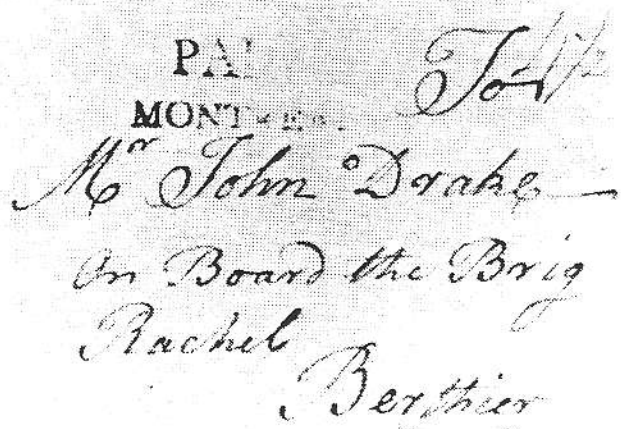 MONTREAL
To
Mr John Drake
On Board the Brig
Rachel
Berthier